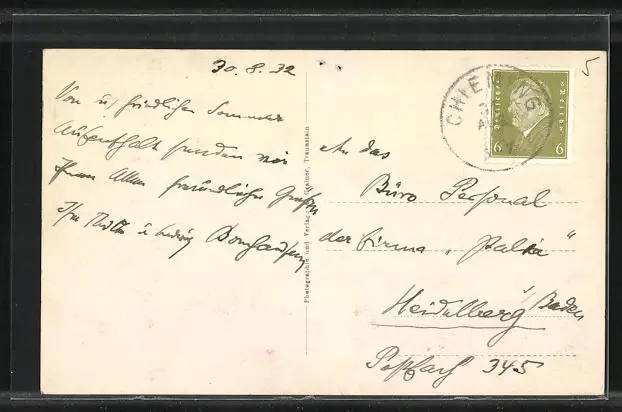 30.8.32
Von u. friedlichen Sommer
Aufenthalt senden wir
Ihnen Allen freundliche Grüße
Ihre u. Ludwig
Photographie und Verlag Traunstein
CHIEMING
Deutsches Reich
6 6
5
An das
Büro Personal
der Firma „
Heidelberg / Baden
Postfach 345